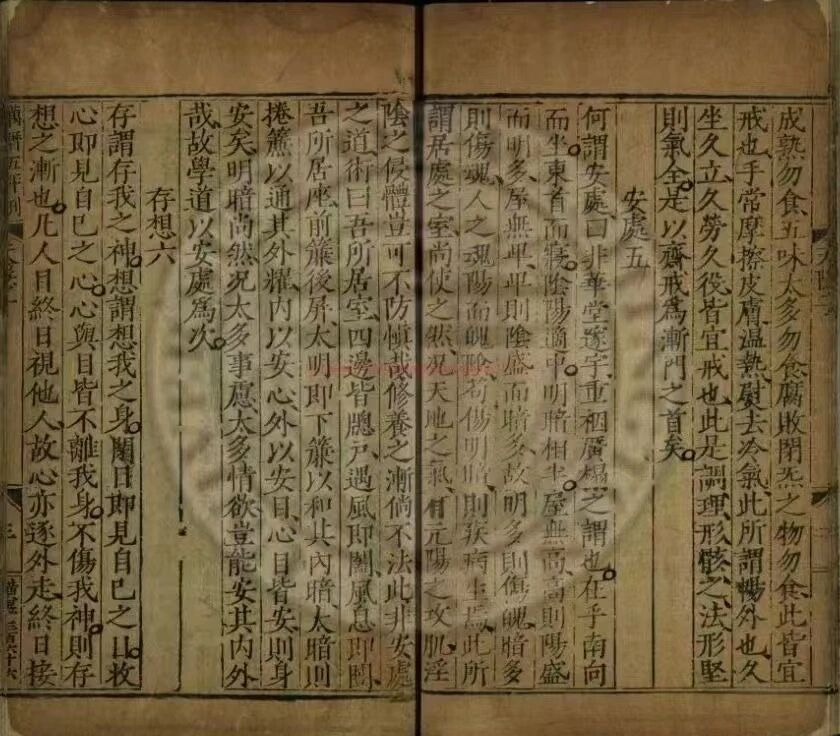 成熟勿食五味太多勿食腐敗閉炁之物勿食此皆宜
戒也手常摩擦皮膚温熱熨去冷氣此所謂暢外也久
坐久立久勞久役皆宜戒也此是調理形骸之法形堅
則氣全是以齋戒爲漸門之首矣
安處五
何謂安處曰非華堂邃宇重裀廣榻之謂也在乎南向
而坐東首而寢陰陽適中明暗相半屋無高高則陽盛
而明多屋無卑卑則陰盛而暗多故明多則傷魄暗多
則傷魂人之魂陽而魄陰苟傷明暗則疾病生焉此所
謂居處之室尚使之然况天地之氣有元陽之攻肌淫
陰之侵體豈可不防慎哉修養之漸倘不法此非安處
之道術曰吾所居室四邊皆牕戸遇風即闔風息即闓
吾所居座前簾後屏太明即下簾以和其内暗太暗則
捲簾以通其外耀内以安心外以安目心目皆安則身
安矣明暗尚然况太多事慮太多情欲豈能安其内外
哉故學道以安處爲次
存想六
存謂存我之神想謂想我之身閉目即見自己之目收
心即見自己之心心與目皆不離我身不傷我神則存
想之漸也凡人目終日視他人故心亦逐外走終日接
三